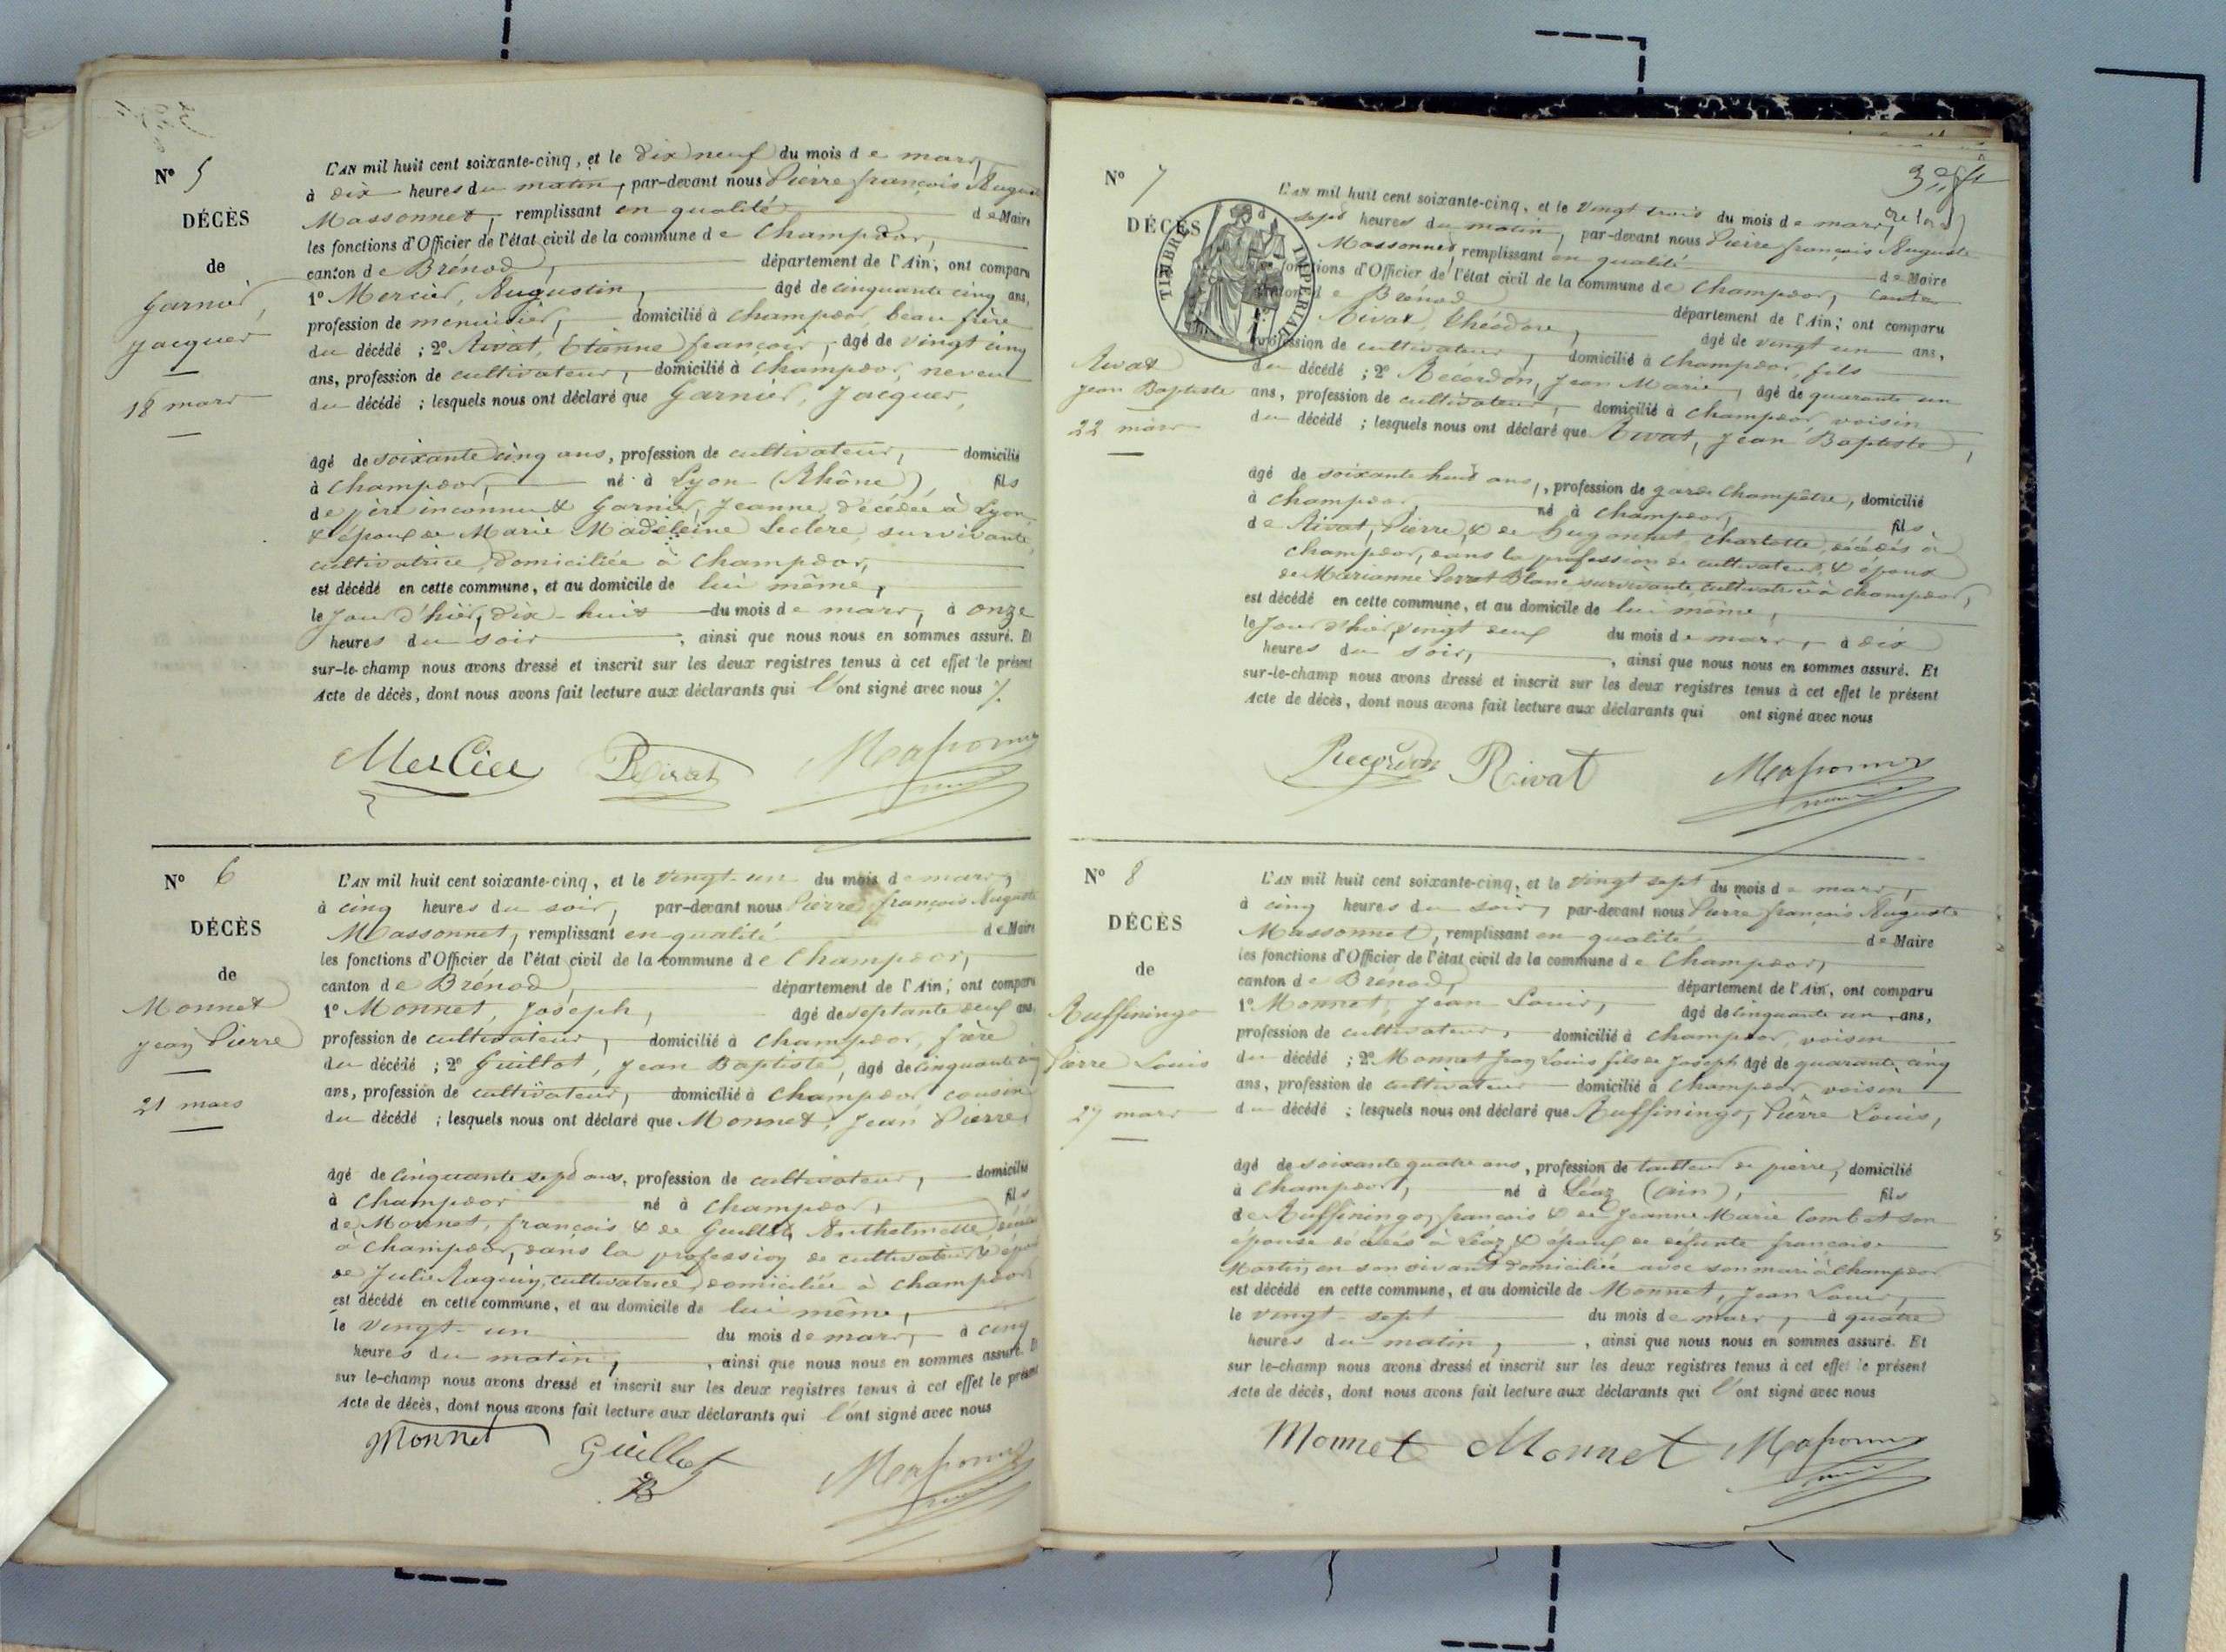 N° 5
DÉCÈS
de
Garnier,
Jacques
18 mars
L'AN mil huit cent soixante-cinq, et le dix neuf du mois de mars,
à dix heures du matin, par-devant nous Pierre françois Auguste
Massonnet, remplissant en qualité de Maire
les fonctions d'Officier de l'état civil de la commune de Champdor,
canton de Brénod, département de l'Ain, ont comparu
1° Mercier, Augustin, âgé de cinquante cinq ans,
profession de menuisier, domicilié à Champdor, beau frère
du décédé ; 2° Rivat, Etienne françois, âgé de vingt cinq
ans, profession de cultivateur, domicilié à Champdor, neveu
du décédé ; lesquels nous ont déclaré que Garnier, Jacques,
âgé de soixante cinq ans, profession de cultivateur, domicilié
à Champdor, né à Lyon (Rhône), fils
de père inconnu & Garnier, Jeanne, décédée à Lyon,
& époux de Marie Madeleine Leclerc, survivante,
cultivatrice, domiciliée à Champdor,
est décédé en cette commune, et au domicile de lui même,
le Jour d'hier, dix-huit du mois de mars, à onze
heures du soir, ainsi que nous nous en sommes assuré. Et
sur-le-champ nous avons dressé et inscrit sur les deux registres tenus à cet effet le présent
Acte de décès, dont nous avons fait lecture aux déclarants qui l'ont signé avec nous
Mercier Rivat Massonnet
N° 6
DÉCÈS
de
Monnet
Jean Pierre
21 mars
L'AN mil huit cent soixante-cinq, et le vingt-un du mois de mars,
à cinq heures du soir, par-devant nous Pierre françois Auguste
Massonnet, remplissant en qualité de Maire
les fonctions d'Officier de l'état civil de la commune de Champdor,
canton de Brénod, département de l'Ain, ont comparu
1° Monnet, Joseph, âgé de septante deux ans,
profession de cultivateur, domicilié à Champdor, frère
du décédé ; 2° Guillot, Jean Baptiste, âgé de cinquante cinq
ans, profession de cultivateur, domicilié à Champdor cousin
du décédé ; lesquels nous ont déclaré que Monnet, Jean Pierre
âgé de cinquante sept ans, profession de cultivateur, domicilié
à Champdor né à Champdor, fils
de Monnet, françois & de Guillot, Anthelmette, décédés
à Champdor, dans la profession de cultivateur & époux
de Julie Raguin, cultivatrice, domiciliée à Champdor
est décédé en cette commune, et au domicile de lui même,
le vingt-un du mois de mars, à cinq
heures du matin, ainsi que nous nous en sommes assuré. Et
sur le-champ nous avons dressé et inscrit sur les deux registres tenus à cet effet le présent
Acte de décès, dont nous avons fait lecture aux déclarants qui l'ont signé avec nous
Monnet Guillot JB Massonnet
N° 7
DÉCÈS
TIMBRE IMPÉRIAL
Rivat
Jean Baptiste
22 mars
L'AN mil huit cent soixante-cinq, et le vingt trois du mois de mars,
sept heures du matin, par-devant nous Pierre françois Auguste
Massonnet, remplissant en qualité de Maire
fonctions d'Officier de l'état civil de la commune de Champdor, canton
de Brénod département de l'Ain; ont comparu
Rivat, Théodore, âgé de vingt un ans,
profession de cultivateur, domicilié à Champdor, fils
du décédé ; 2° Récordon, Jean Marie, âgé de quarante un
ans, profession de cultivateur, domicilié à Champdor, voisin
du décédé ; lesquels nous ont déclaré que Rivat, Jean Baptiste,
âgé de soixante huit ans, profession de garde Champêtre, domicilié
à Champdor, né à Champdor, fils
de Rivat, Pierre, & de Hugonnet, Charlotte, décédés à
Champdor, dans la profession de cultivateur, & époux
de Marianne Perrot Blanc survivante, cultivatrice à Champdor,
est décédé en cette commune, et au domicile de lui même,
le Jour d'hier, vingt deux du mois de mars, à dix
heures du soir, ainsi que nous nous en sommes assuré. Et
sur-le-champ nous avons dressé et inscrit sur les deux registres tenus à cet effet le présent
Acte de décès, dont nous avons fait lecture aux déclarants qui ont signé avec nous
Recordon Rivat Massonnet
N° 8
DÉCÈS
de
Ruffiningo
Pierre Louis
27 mars
L'AN mil huit cent soixante-cinq, et le vingt sept du mois de mars,
à cinq heures du soir, par-devant nous Pierre françois Auguste
Massonnet, remplissant en qualité de Maire
les fonctions d'Officier de l'état civil de la commune de Champdor,
canton de Brénod, département de l'Ain, ont comparu
1° Monnet, Jean Louis, âgé de cinquante un ans,
profession de cultivateur, domicilié à Champdor, voisin
du décédé ; 2° Monnet Jean Louis fils de Joseph âgé de quarante cinq
ans, profession de cultivateur domicilié à Champdor, voisin
du décédé ; lesquels nous ont déclaré que Ruffiningo, Pierre Louis,
âgé de soixante quatre ans, profession de tailleur de pierre, domicilié
à Champdor, né à Léaz (Ain), fils
de Ruffiningo, françois & de Jeanne Marie Combet son
épouse décédés à Léaz, & époux de défunte françoise
Martin, en son vivant domiciliée avec son mari à Champdor
est décédé en cette commune, et au domicile de Monnet, Jean Louis,
le vingt-sept du mois de mars, à quatre
heures du matin, ainsi que nous nous en sommes assuré. Et
sur le-champ nous avons dressé et inscrit sur les deux registres tenus à cet effet le présent
Acte de décès, dont nous avons fait lecture aux déclarants qui l'ont signé avec nous
Monnet Monnet Massonnet